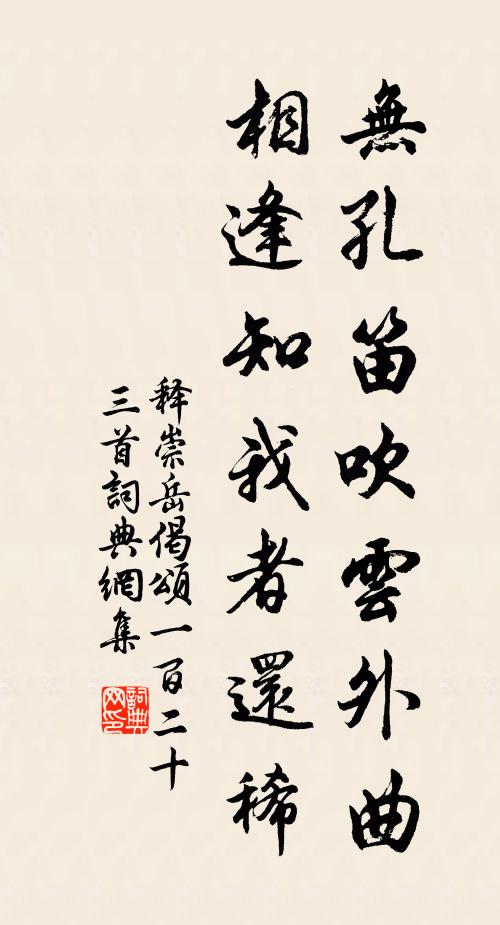 無孔笛吹雲外曲
相逢知我者還稀
释崇岳偈頌一百二十
三首詞典網集
詞典網印